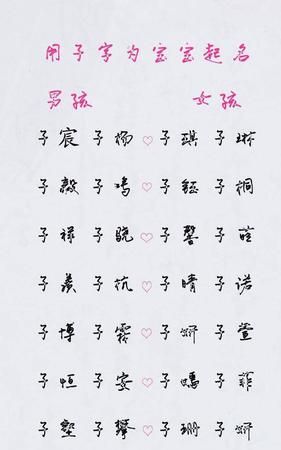 用子字为宝宝起名
男孩 女孩
子宸 子杨 ♡ 子琪 子琳
子毅 子鸣 ♡ 子钰 子桐
子祥 子骁 ♡ 子馨 子萱
子羡 子杭 ♡ 子晴 子诺
子博 子霖 ♡ 子妍 子萱
子恒 子安 ♡ 子嫣 子菲
子墅 子攀 ♡ 子珊 子妍